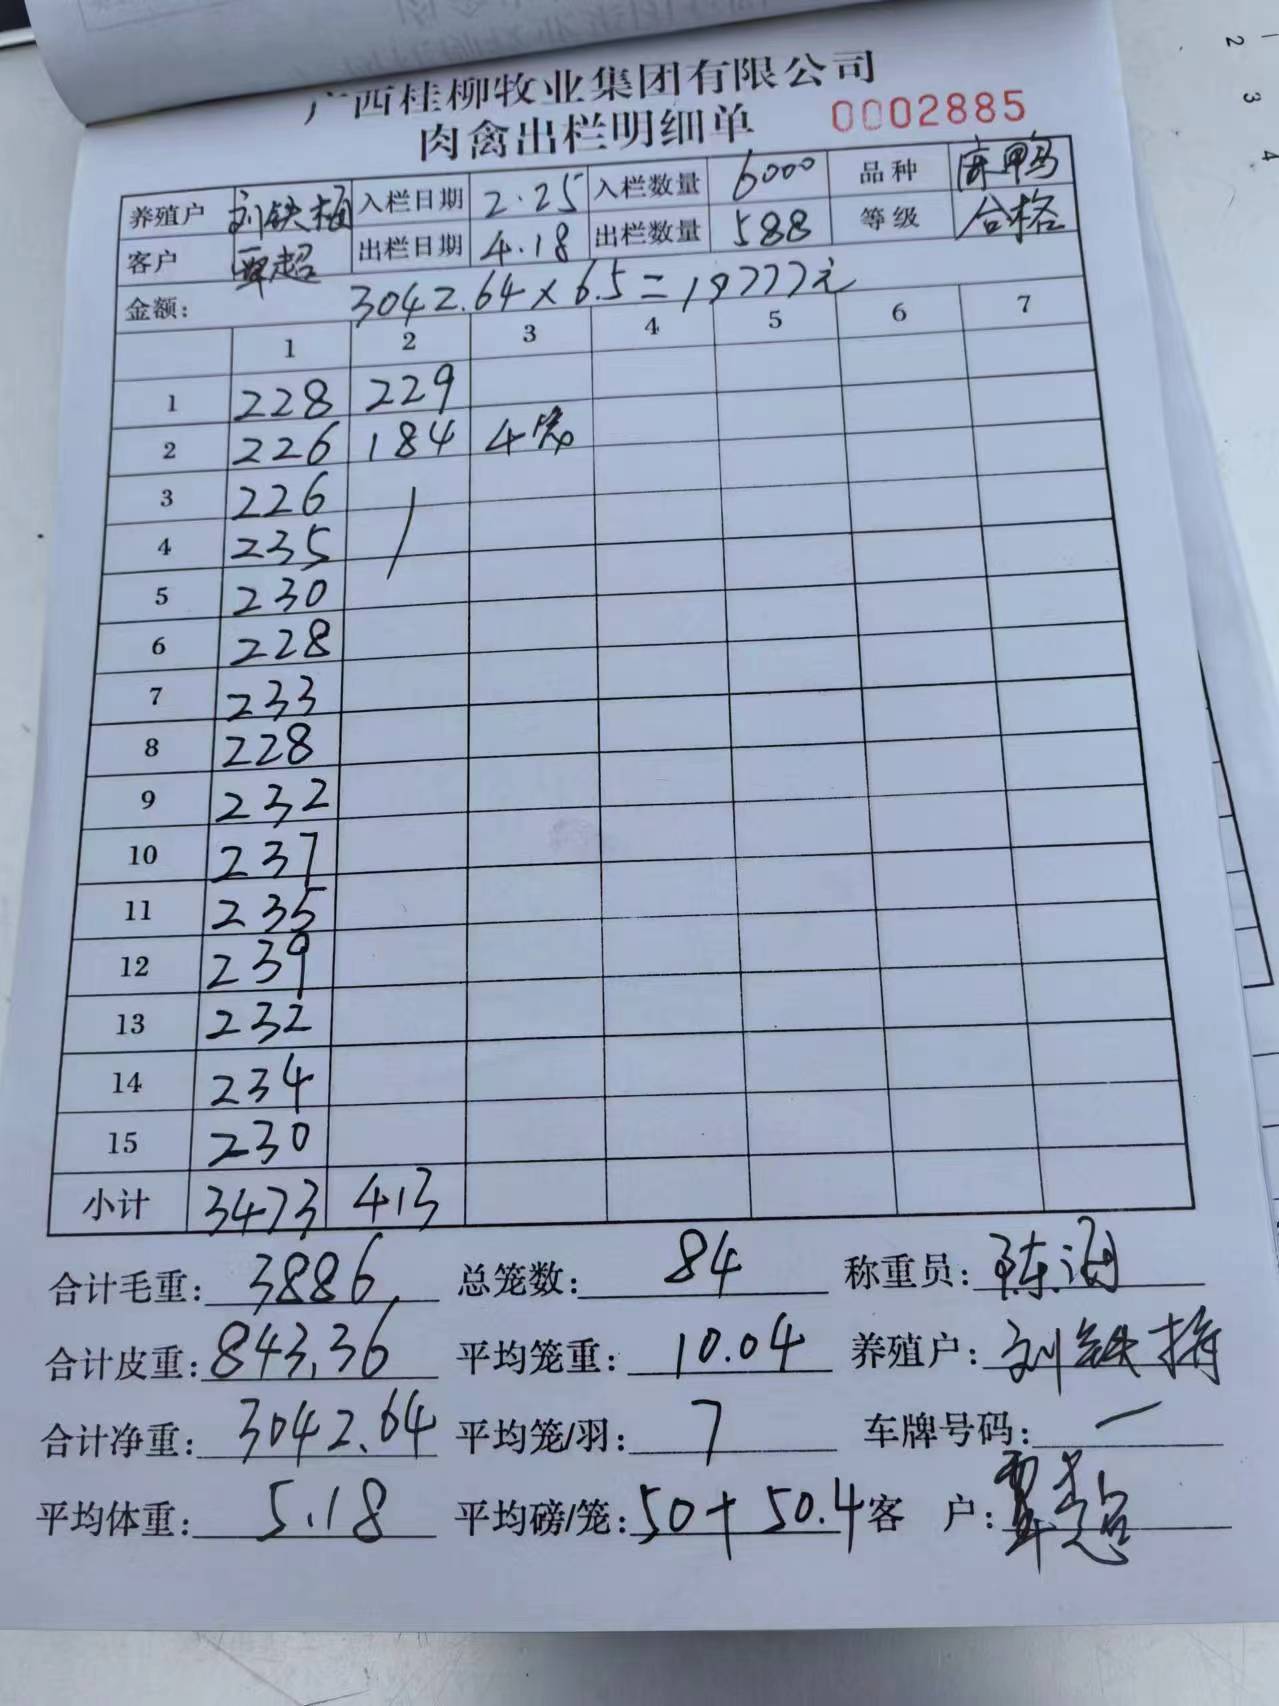 广西桂柳牧业集团有限公司
肉禽出栏明细单 0002885
养殖户 刘铁 入栏日期 2.25 入栏数量 6000 品种 鸭
客户 覃超 出栏日期 4.18 出栏数量 588 等级 合格
金额: 3042.64×6.5=19777元
1 2 3 4 5 6 7
1 228 229
2 226 184 4笼
3 226
4 235
5 230
6 228
7 233
8 228
9 232
10 237
11 235
12 239
13 232
14 234
15 230
小计 3473 413
合计毛重: 3886 总笼数: 84 称重员: 陈海
合计皮重: 843.36 平均笼重: 10.04 养殖户: 刘铁
合计净重: 3042.64 平均笼/羽: 7 车牌号码: 一
平均体重: 5.18 平均磅/笼: 50+50.4 客户: 覃超
2
3
4